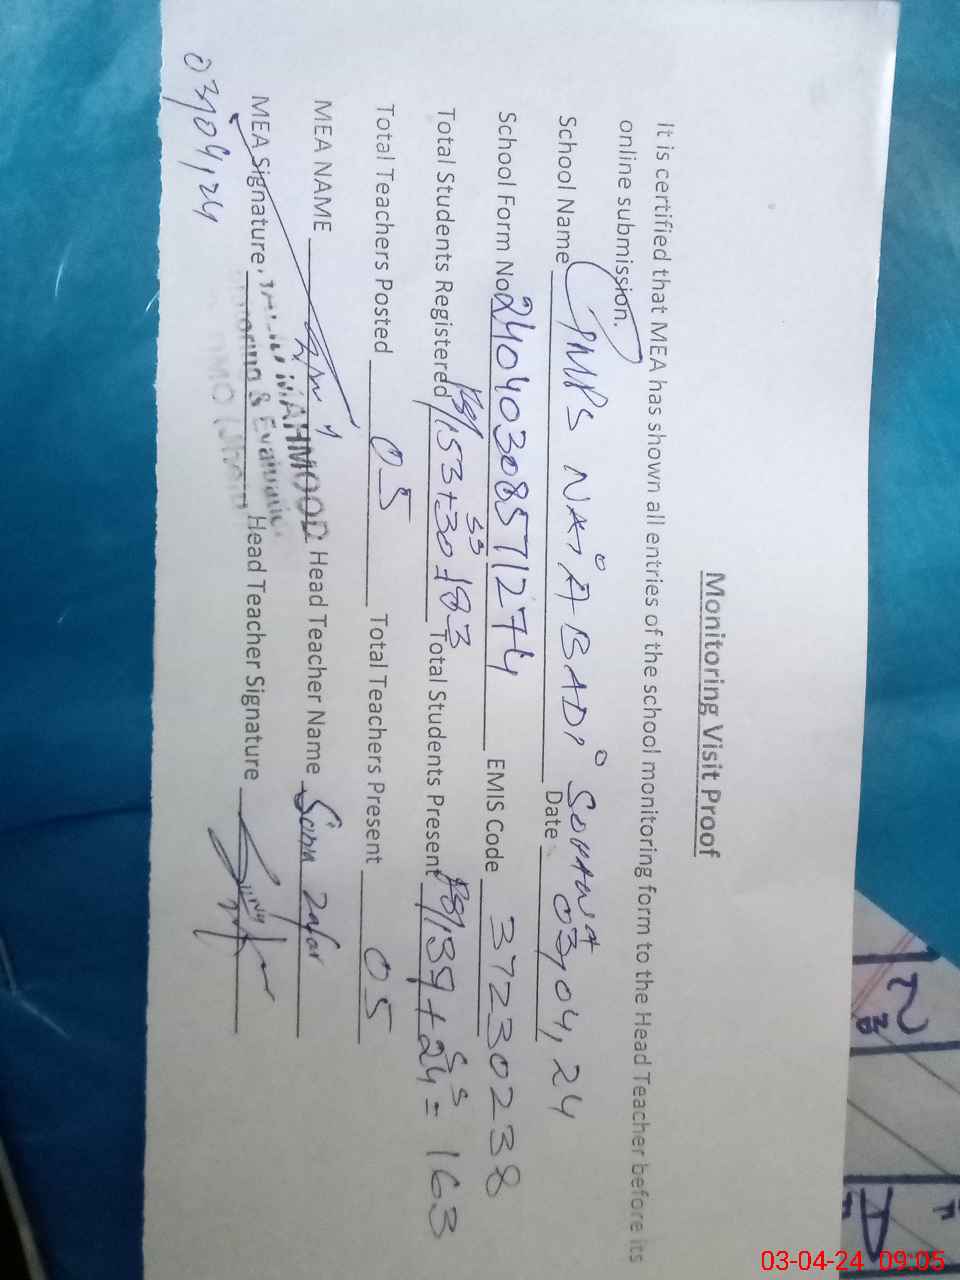 Monitoring Visit Proof
It is certified that MEA has shown all entries of the school monitoring form to the Head Teacher before its
online submission.
School Name GMPS NAI ABADI SOHAWA Date 03,04,24
School Form No 24040308571274 EMIS Code 37230238
Total Students Registered 153+30=183 Total Students Present 139+24= 163
Total Teachers Posted 05 Total Teachers Present 05
MEA NAME MAHMOOD Head Teacher Name Zafar
MEA Signature Monitoring & Evaluation Head Teacher Signature
03,04,24
03-04-24 09:05